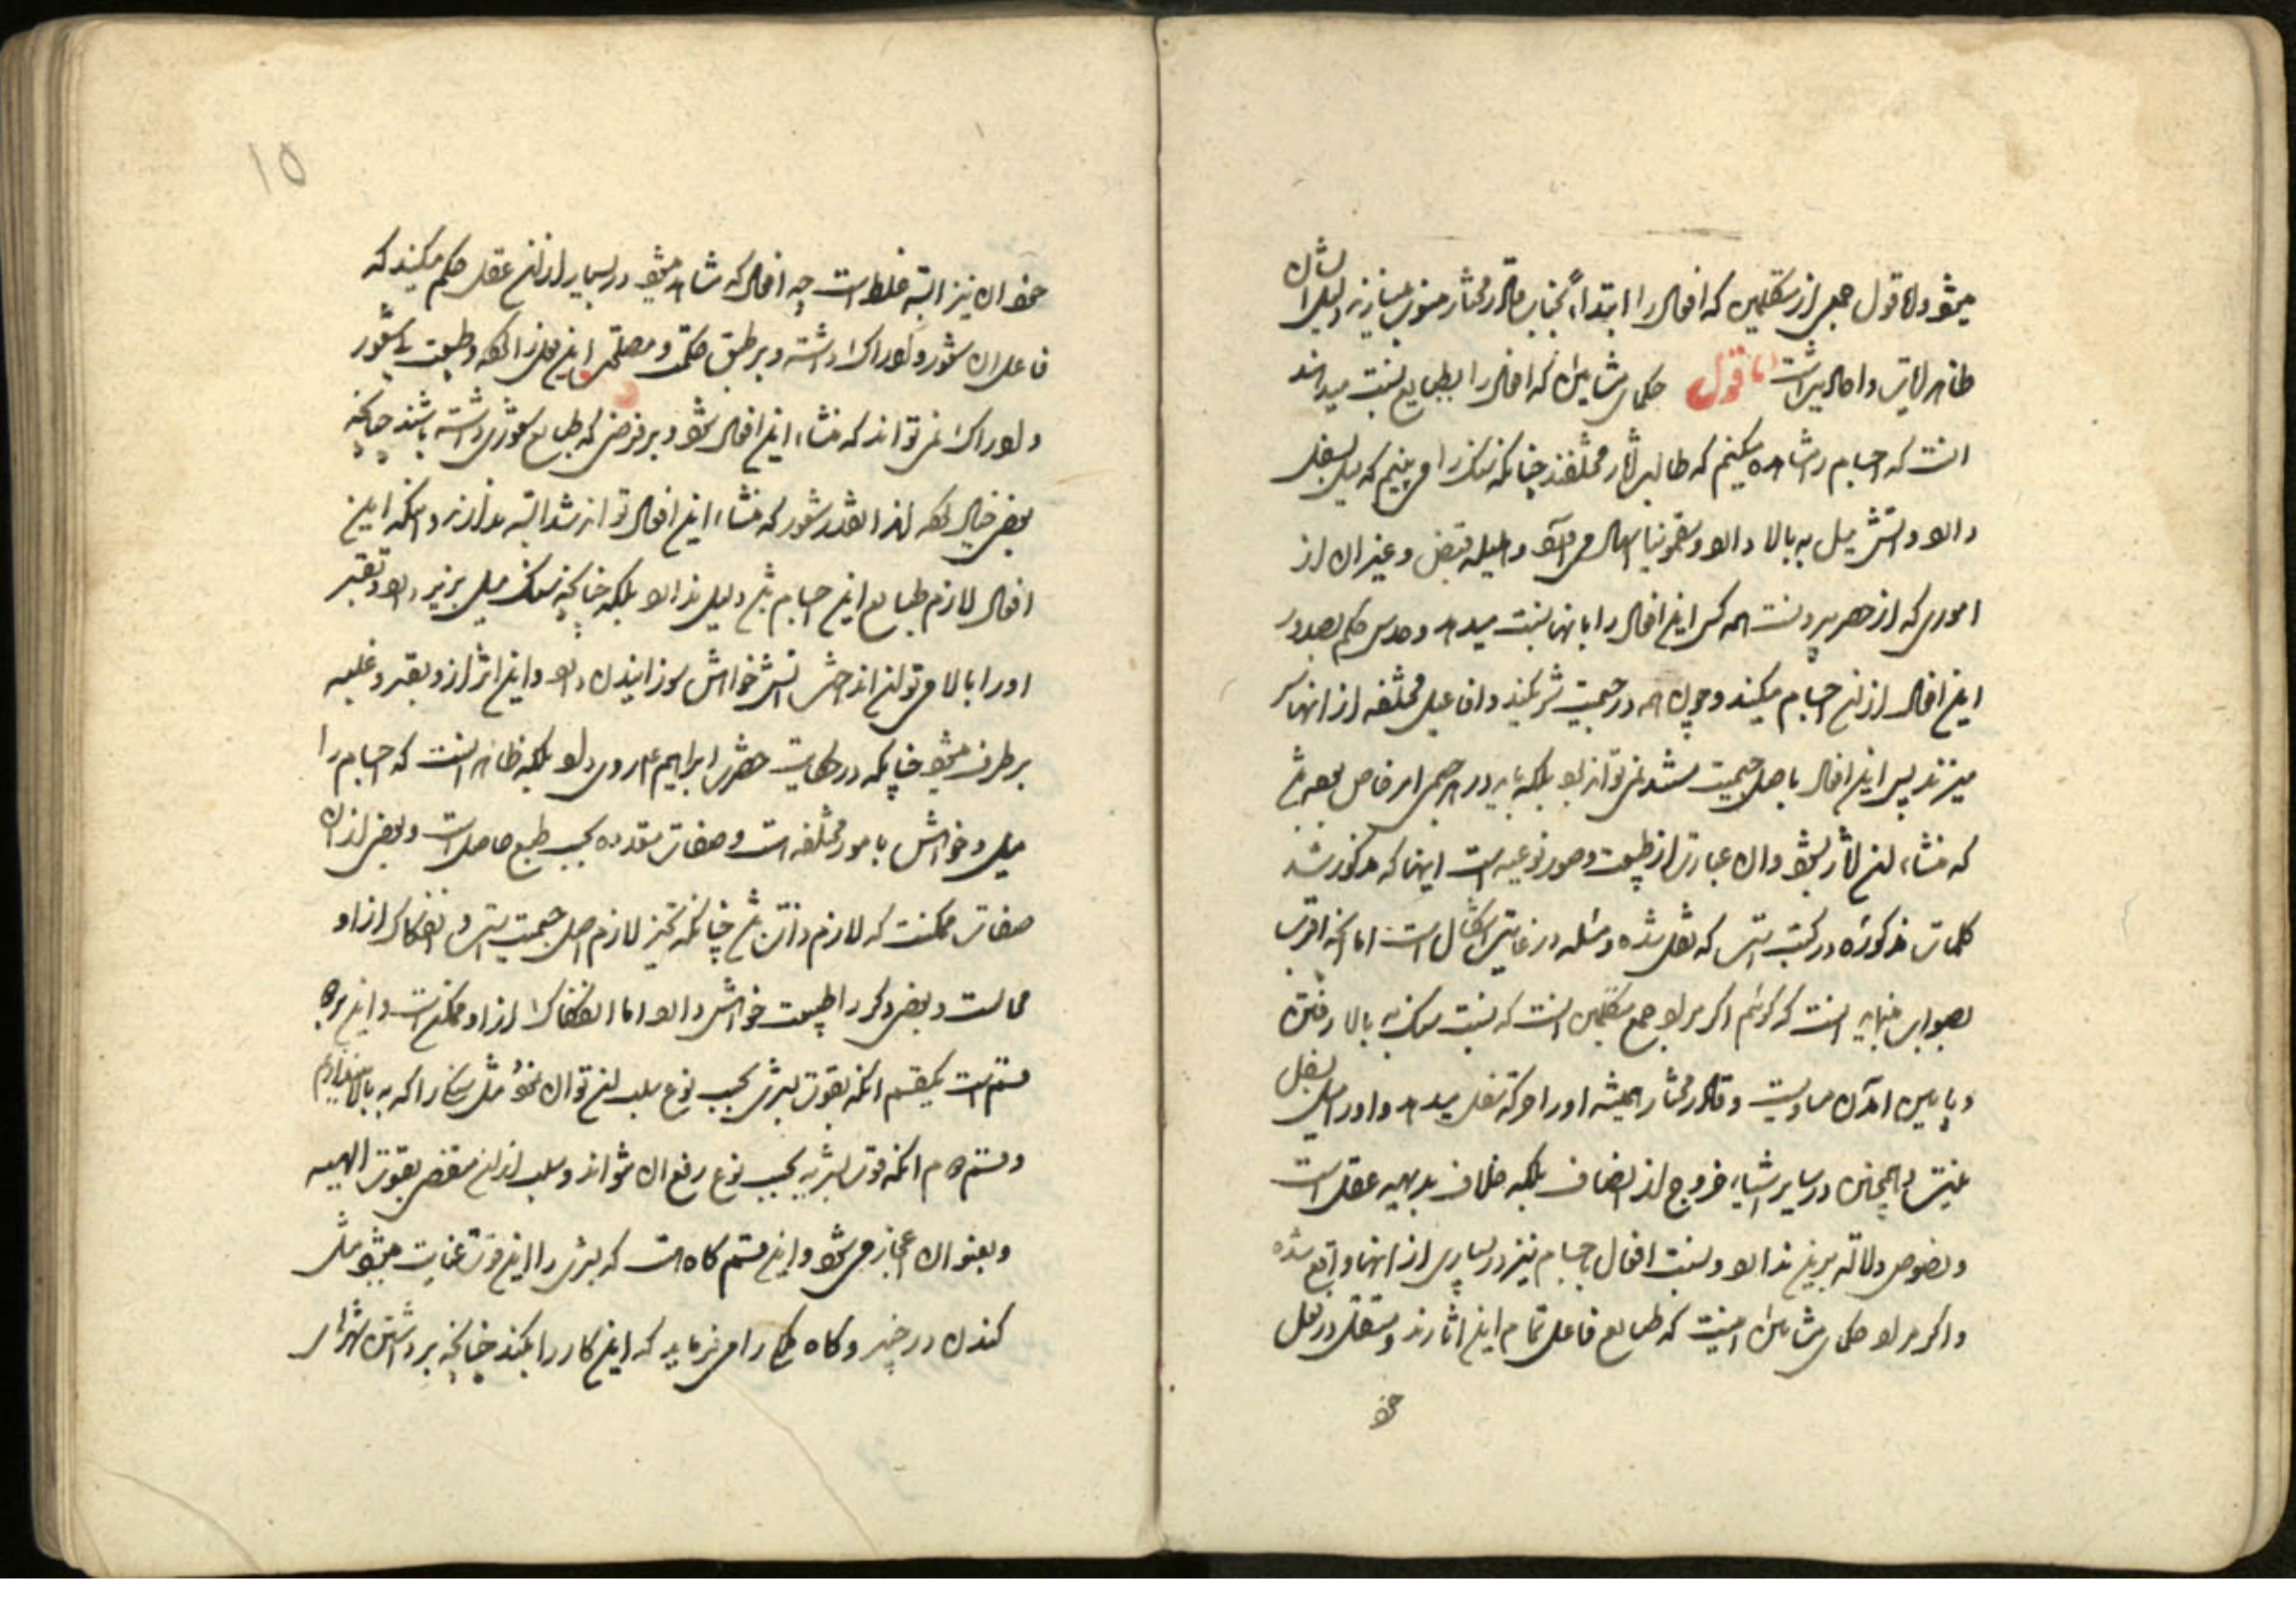 میشود و اما قول جمعی از متکلمین که افعال را ابتداءً بجناب قادر مختار منسوب میسازند دلیل ایشان
ظاهر آیات و احادیث است اما قول حکمای مشایین که افعال را بطبایع نسبت میدهند
آنست که اجسام را مشاهده میکنیم که طالب آثار مختلفند چنانکه سنک را می بینیم که میل بسفل
دارد و آتش میل به بالا دارد و سقمونیا اسهال می آورد و هلیله قبض و غیر آن از
اموری که از حصر بیرونست همه کس این افعال را بانها نسبت میدهد و حدس حکم بصدور
این افعال از این اجسام میکند و چون همه در جسمیت شریکند و افاعیل مختلفه از انها سر
میزند پس این افعال باصل جسمیت مستند نمی تواند بود بلکه باید در هر جسمی امر خاص بوده باشد
که منشاء این آثار بشود و ان عبارت از طبیعت و صور نوعیه است اینها که مذکور شد
کلمات مذکوره در کتب است که نقل شده و مسئله در غایت اشکال است اما آنچه اقرب
بصواب مینماید آنست که گوئیم اگر مراد جمع متکلمین آنست که نسبت سنک به بالا رفتن
و پایین آمدن مساویست و قادر مختار همیشه او را حرکت سفل میدهد و او را میل بسفل
نیست و همچنین در سایر اشیاء خروج از انصاف بلکه خلاف بدیهیه عقل است
و نصوص دلالت برین ندارد و نسبت افعال باجسام نیز در بسیاری از انها واقع شده
و اگر مراد حکمای مشایین اینست که طبایع فاعل تمام این اثارند و مستقل در فعل
خود
۱۵
خود ان نیز البته غلط است چه افعال که مشاهده میشود در بسیار از ان عقل حکم میکند که
فاعل ان شعور و ادراک داشته و بر طبق حکمت و مصلحتی این فعل را کرده و طبیعت بی شعور
و ادراک نمی تواند که منشاء این افعال شود و بر فرض که طبایع شعوری داشته باشند چنانچه
بعضی خیال کرده اند انقدر شعور که منشاء این افعال تواند شد البته ندارند و انکه این
افعال لازم طبایع این اجسام باشد دلیل ندارد بلکه چنانچه سنک میل بزیر دارد و بقسر
او را بالا می توان انداخت آتش خواهش سوزانیدن دارد و این اثر از و بقسر و غلبه
بر طرف میشود چنانکه در حکایت حضرت ابراهیم ع روی داد بلکه ظاهر آنست که اجسام را
میل و خواهش بامور مختلفه است و صفات متعدده بحسب طبع حاصل است و بعضی از ان
صفات ممکنست که لازم ذات باشد چنانکه تحیز لازم اصل جسمیت است و انفکاک از او
محالست و بعضی دیگر را طبیعت خواهش دارد اما انفکاک از او ممکنست و این بر دو
قسمست یکقسم انکه بقوت بشری بحسب نوع سلب ان توان نمود مثل سنک را که به بالا اندازیم
و قسم دوم انکه قوت بشریه بحسب نوع رفع ان نتواند و سلب از ان مقتضی بقوت الهیه
و بعنوان اعجاز می شود و این قسم کاه هست که بشری را این قوت عنایت میشود مثل
کندن در خیبر و کاه ملکی را می فرماید که این کار را بکند چنانچه برداشتن شهرهای